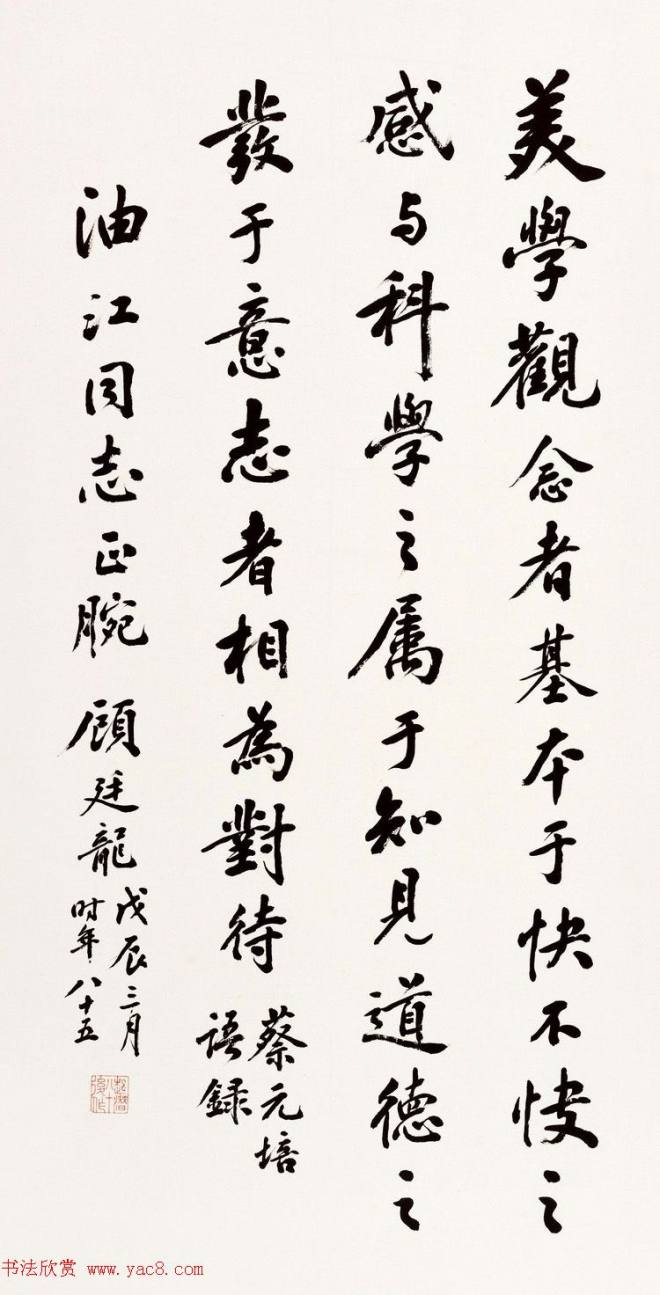 美學觀念者基本于快不快之
感与科學之属于知見道德之
發于意志者相為對待
蔡元培
語録
油江同志正腕
顾廷龍
戊辰三月
时年八十五
书法欣赏 www.yac8.com